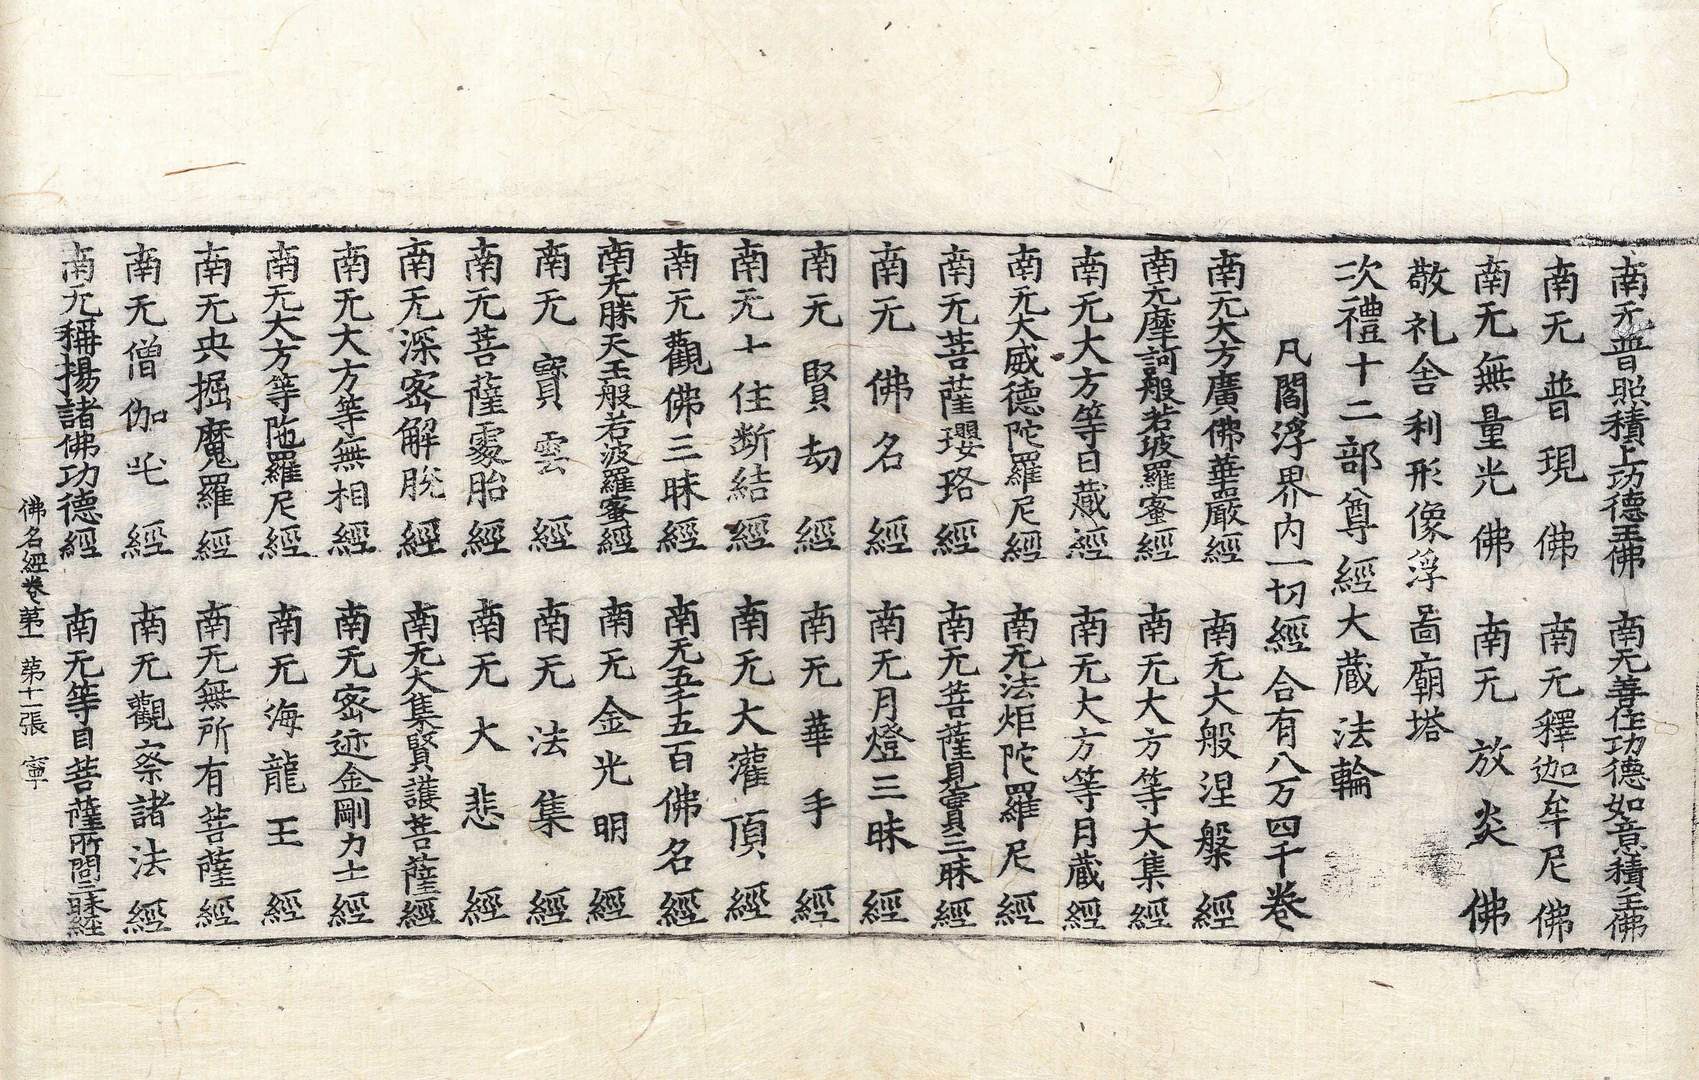 南无普照積上功德王佛　南无善住功德如意積王佛
南无普現佛　南无釋迦牟尼佛
南无無量光佛　南无放炎佛
敬礼舍利形像浮啚廟塔
次禮十二部尊經大蔵法輪
凡閻浮界内一切經合有八万四千卷
南无大方廣佛華嚴經　南无大般涅槃經
南无摩訶般若波羅蜜經　南无大方等大集經
南无大方等日蔵經　南无大方等月蔵經
南无大威德陀羅尼經　南无法炬陀羅尼經
南无菩薩瓔珞經　南无菩薩見實三昧經
南无佛名經　南无月燈三昧經
南无賢劫經　南无華手經
南无十住斷結經　南无大灌頂經
南无觀佛三昧經　南无五千五百佛名經
南无勝天王般若波羅蜜經　南无金光明經
南无寶雲經　南无法集經
南无菩薩處胎經　南无大悲經
南无深密解脫經　南无大集賢護菩薩經
南无大方等無相經　南无密迹金剛力士經
南无大方等陁羅尼經　南无海龍王經
南无央掘魔羅經　南无無所有菩薩經
南无僧伽吒經　南无觀察諸法經
南无稱揚諸佛功德經　南无等目菩薩所問三昧経
佛名經卷第一　第十二張　寧